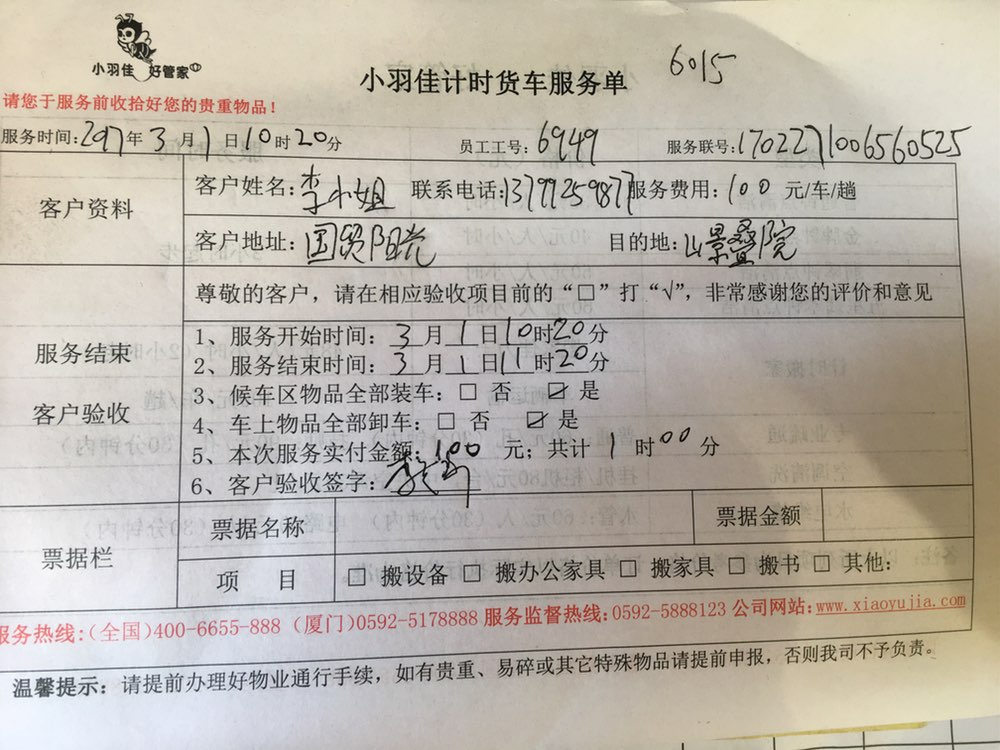 小羽佳 好管家
小羽佳计时货车服务单 6015
请您于服务前收拾好您的贵重物品！
服务时间：2017年3月1日10时20分 员工工号：6949 服务联号：1702271006560525
客户资料
客户姓名：李小姐 联系电话：13799259877 服务费用：100元/车/趟
客户地址：国贸阳光 目的地：山景叠院
尊敬的客户，请在相应验收项目前的“□”打“√”，非常感谢您的评价和意见
服务结束
客户验收
1、服务开始时间：3月1日10时20分
2、服务结束时间：3月1日11时20分
3、候车区物品全部装车：□ 否 ☑ 是
4、车上物品全部卸车：□ 否 ☑ 是
5、本次服务实付金额：100元；共计1时00分
6、客户验收签字：
票据栏
票据名称 票据金额
项 目 □ 搬设备 □ 搬办公家具 □ 搬家具 □ 搬书 □ 其他：
服务热线：(全国)400-6655-888 (厦门)0592-5178888 服务监督热线：0592-5888123 公司网站：www.xiaoyujia.com
温馨提示：请提前办理好物业通行手续，如有贵重、易碎或其它特殊物品请提前申报，否则我司不予负责。